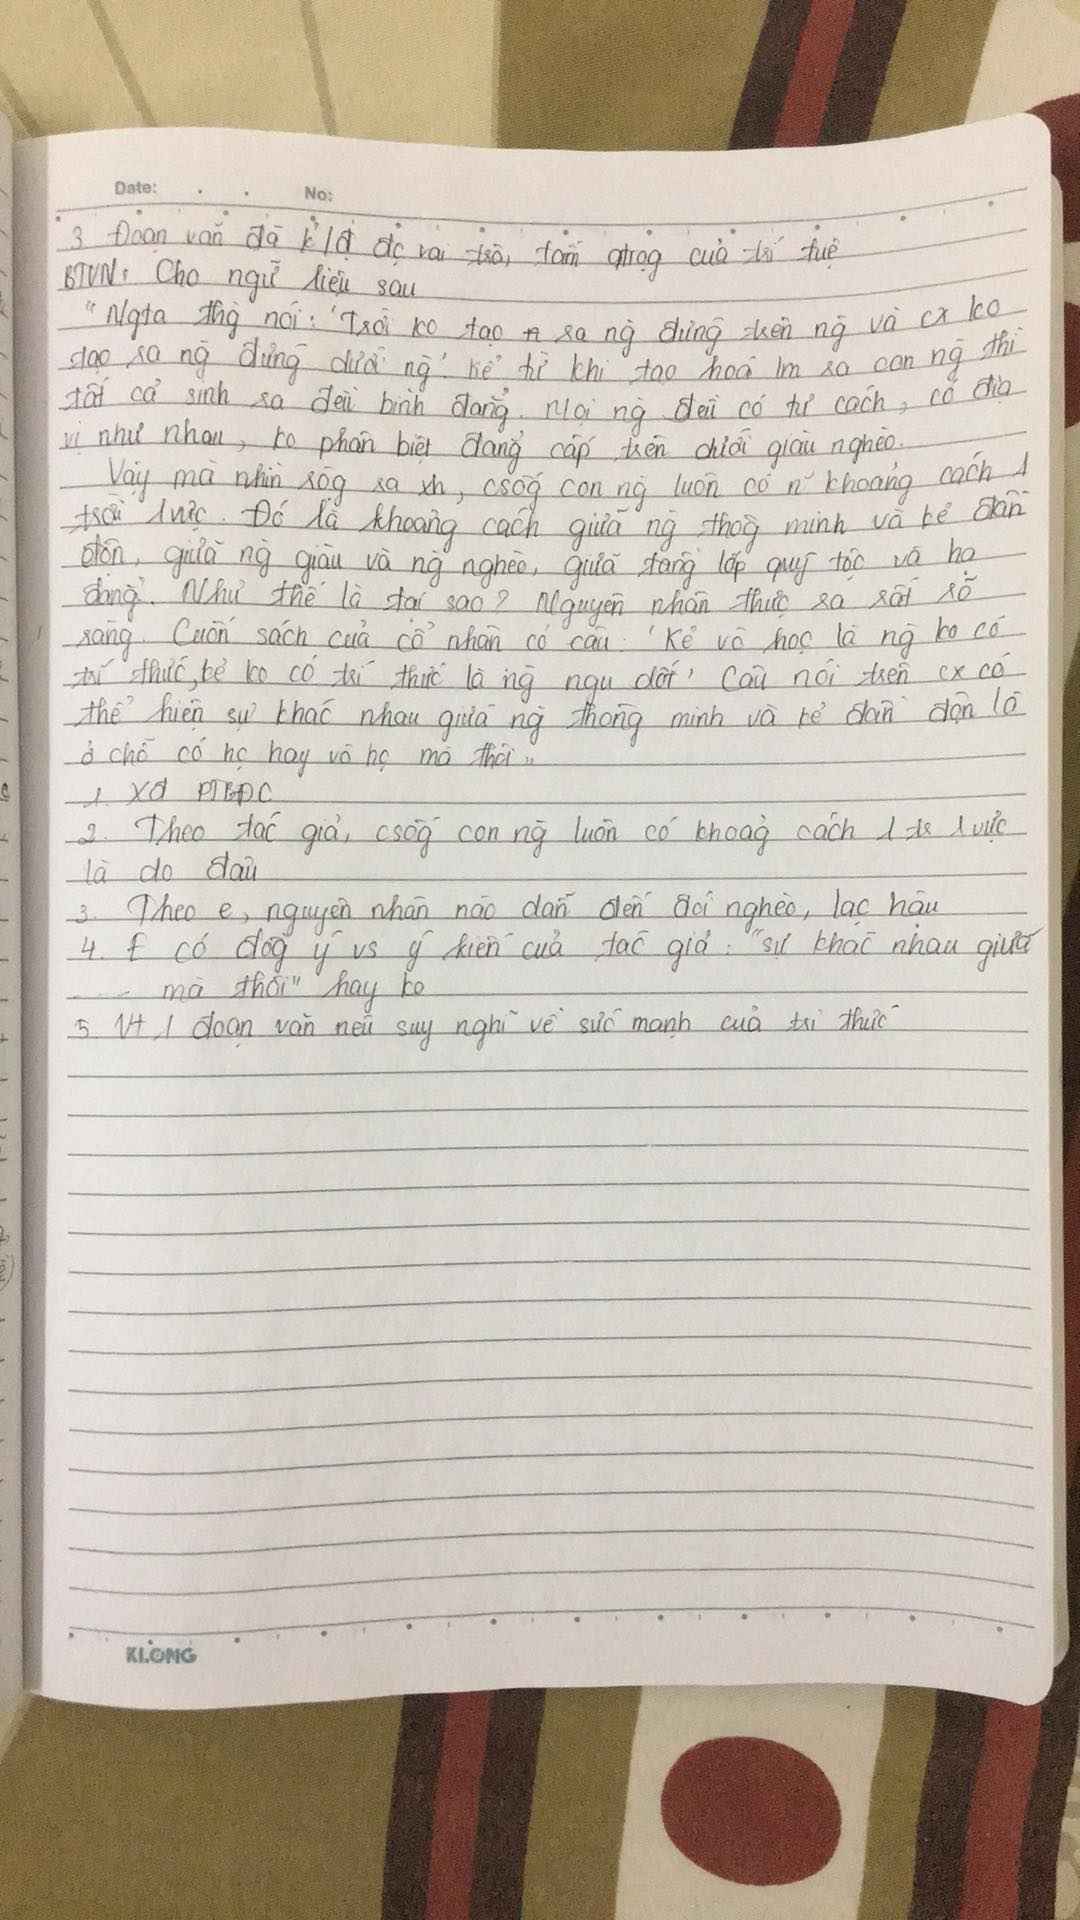 Date: . . No:
3. Đoạn văn đã k/đ đc vai trò, tầm qtrọg của trí tuệ
BTVN: Cho ngữ liệu sau
"Ngta thg nói: 'Trời ko tạo ra ng đứng trên ng và cx ko
tạo ra ng đứng dưới ng'. Kể từ khi tạo hoá lm ra con ng thì
tất cả sinh ra đều bình đẳng. Mọi ng đều có tư cách, có địa
vị như nhau, ko phân biệt đẳng cấp trên dưới giàu nghèo.
Vậy mà nhìn rộg ra xh, csốg con ng luôn có n~ khoảng cách 1
trời 1 vực. Đó là khoảng cách giữa ng thôg minh và kẻ đần
độn, giữa ng giàu và ng nghèo, giữa tầng lớp quý tộc và hạ
đẳng. Như thế là tại sao? Nguyên nhân thực ra rất rõ
ràng. Cuốn sách của cổ nhân có câu: 'Kẻ vô học là ng ko có
trí thức, kẻ ko có trí thức là ng ngu dốt' Câu nói trên cx có
thể hiện sự khác nhau giữa ng thông minh và kẻ đần độn là
ở chỗ có học hay vô học mà thôi"
1. XĐ PTBĐC
2. Theo tác giả, csốg con ng luôn có khoảg cách 1 tr 1 vực
là do đâu
3. Theo e, nguyên nhân nào dẫn đến đói nghèo, lạc hậu
4. E có đồg ý vs ý kiến của tác giả: "sự khác nhau giữa
... mà thôi" hay ko
5. Vt 1 đoạn văn nêu suy nghĩ về sức mạnh của tri thức
KLONG